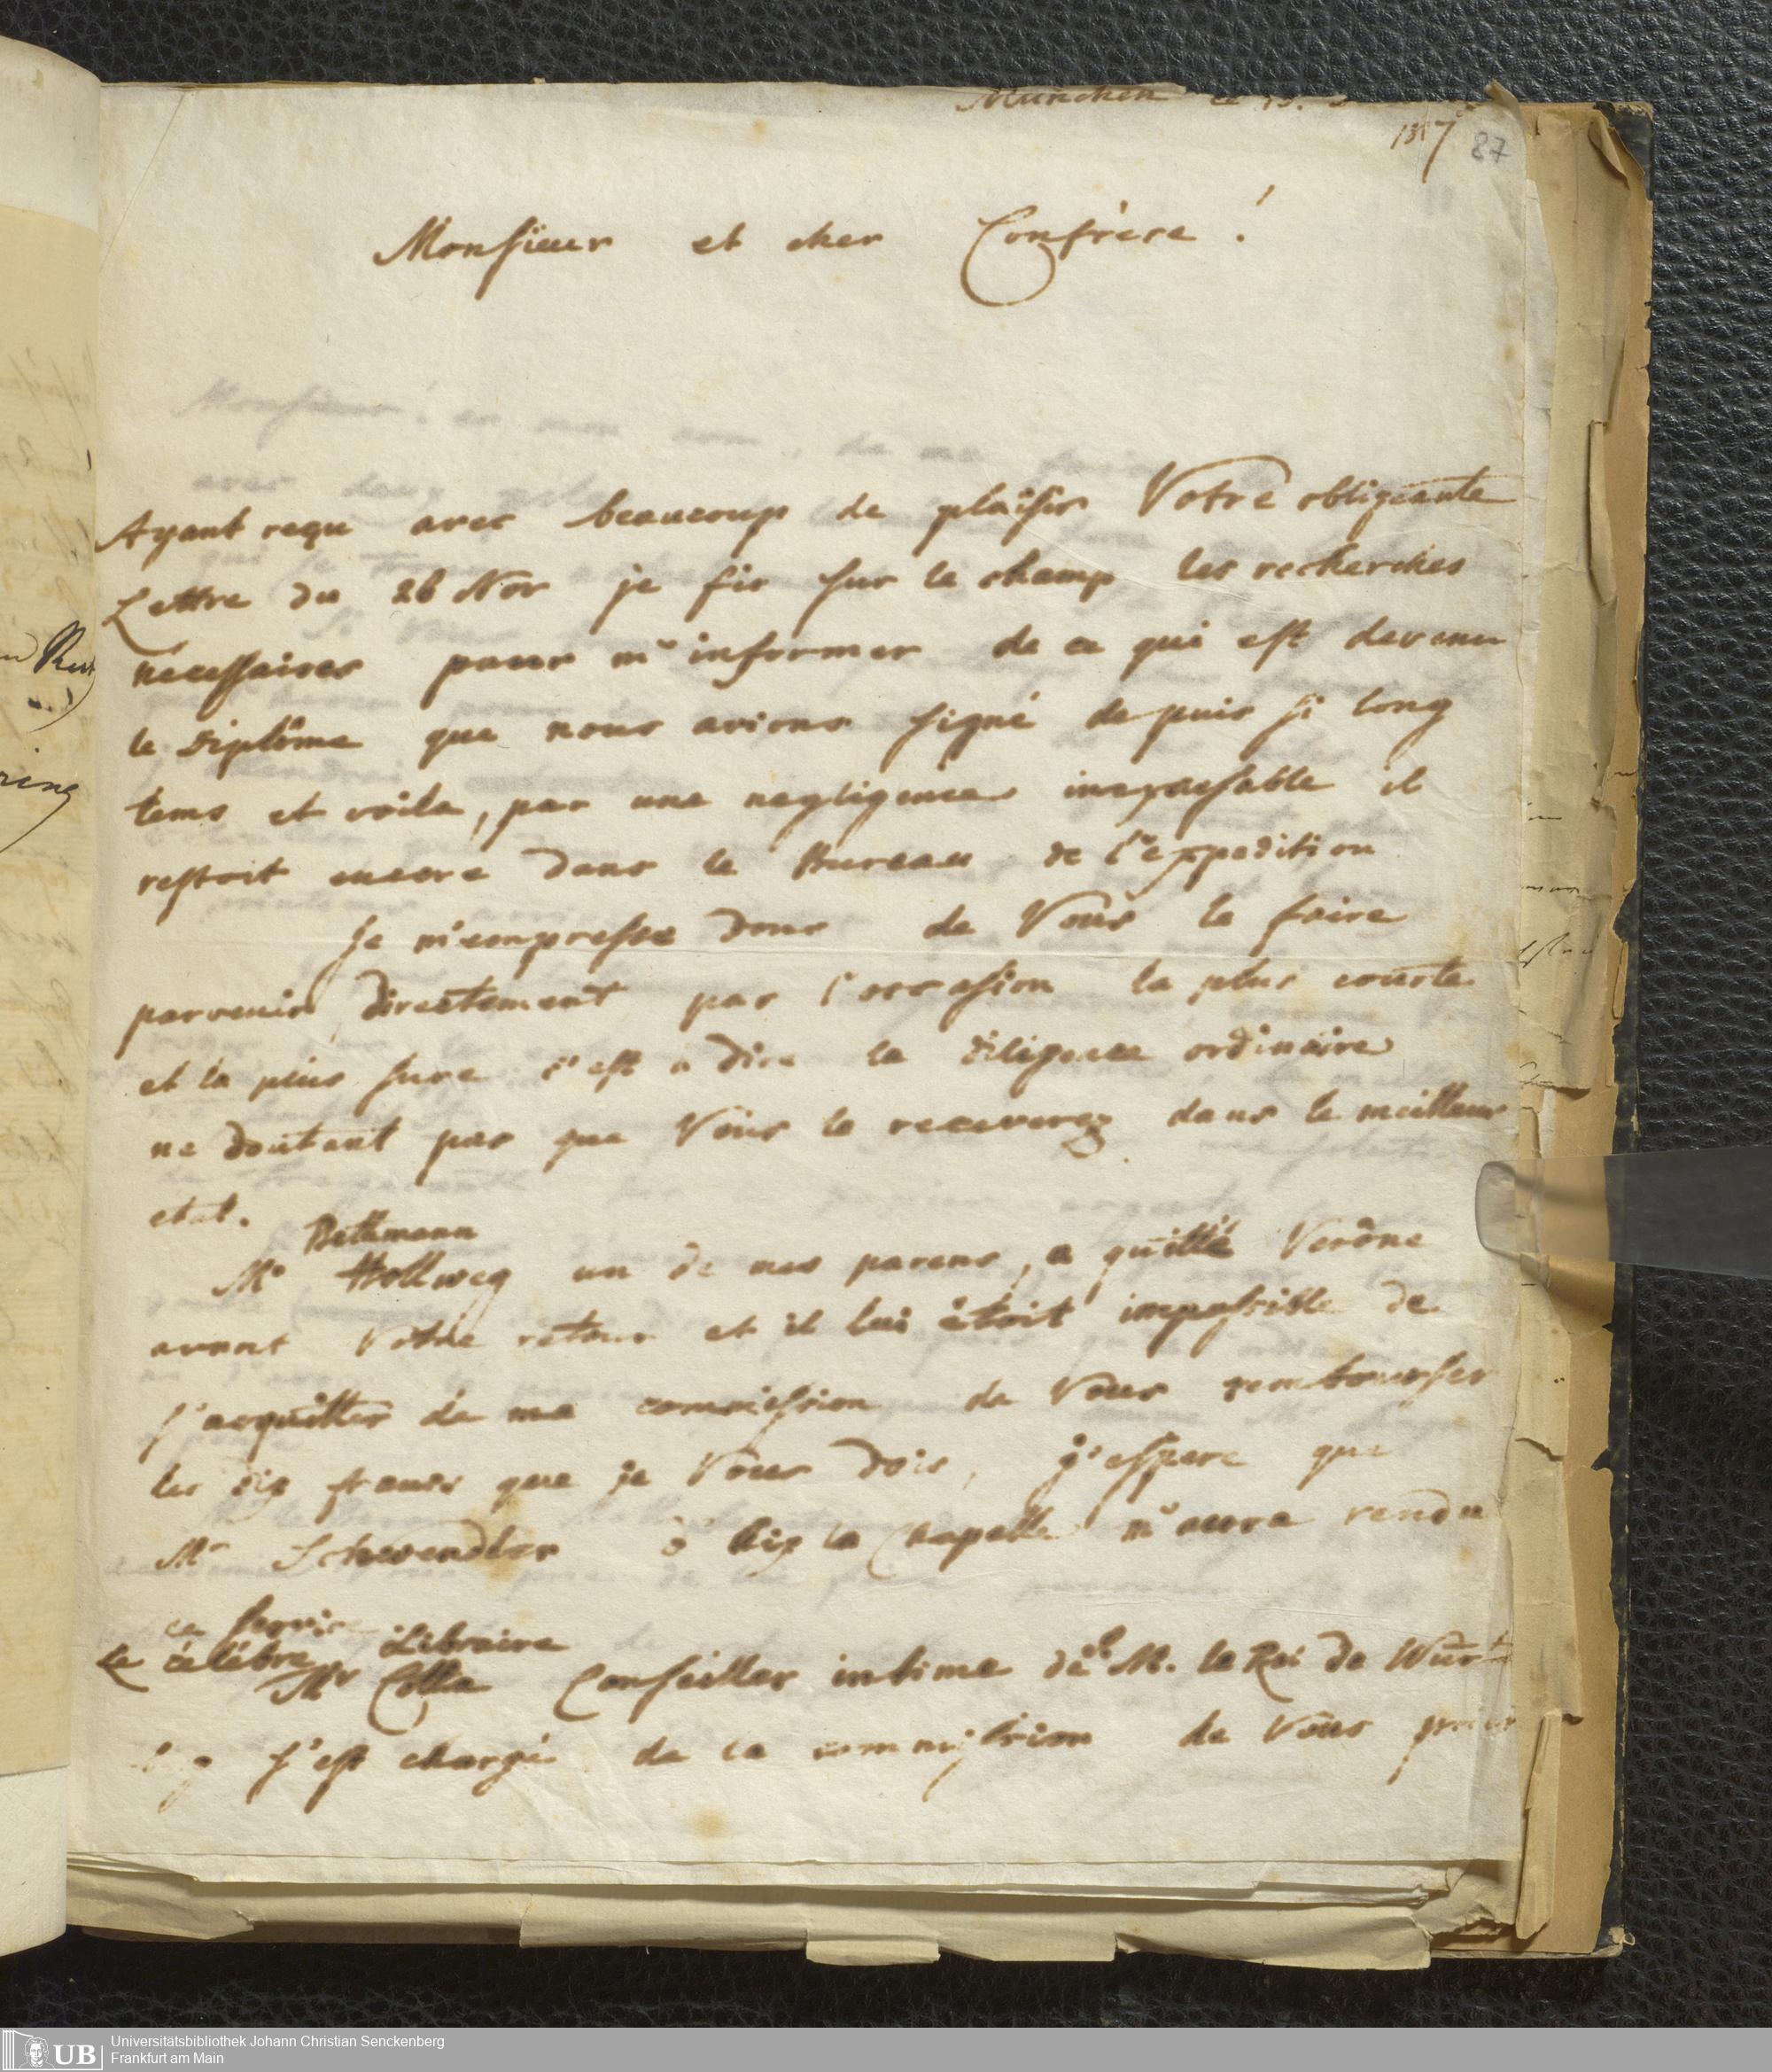 München ce 15.
1817 87
Monsieur et cher Confrère!
Ayant reçu avec beaucoup de plaisir Votre obligeante
Lettre du 26 Nov je fis sur le champ les recherches
nécessaires pour m'informer de ce qui est devenu
le Diplôme que nous avions signé depuis si long
tems et voila, par une negligence inexcusable il
restoit encore dans le Bureau de l'expedition
Je m'empresse donc de Vous le faire
parvenir directement par l'occasion la plus courte
et la plus sure c'est a dire la diligence ordinaire
ne doutant pas que Vous le receverez dans le meilleur
etat.
Bethmann
Mr Hollweg un de mes parens, a quitté Verône
avant Votre retour et il lui êtoit impossible de
s'acquitter de ma commission de Vous rembourser
les dix francs que je Vous dois, j'espere que
Mr Schwendler à Aix la Chapelle m'aura rendu
ce service
Le célébre Libraire
Mr Cotta Conseiller intime de S. M. le Roi de Würt
s'est chargé de la commission de Vous prier
Universitätsbibliothek Johann Christian Senckenberg
Frankfurt am Main
UB